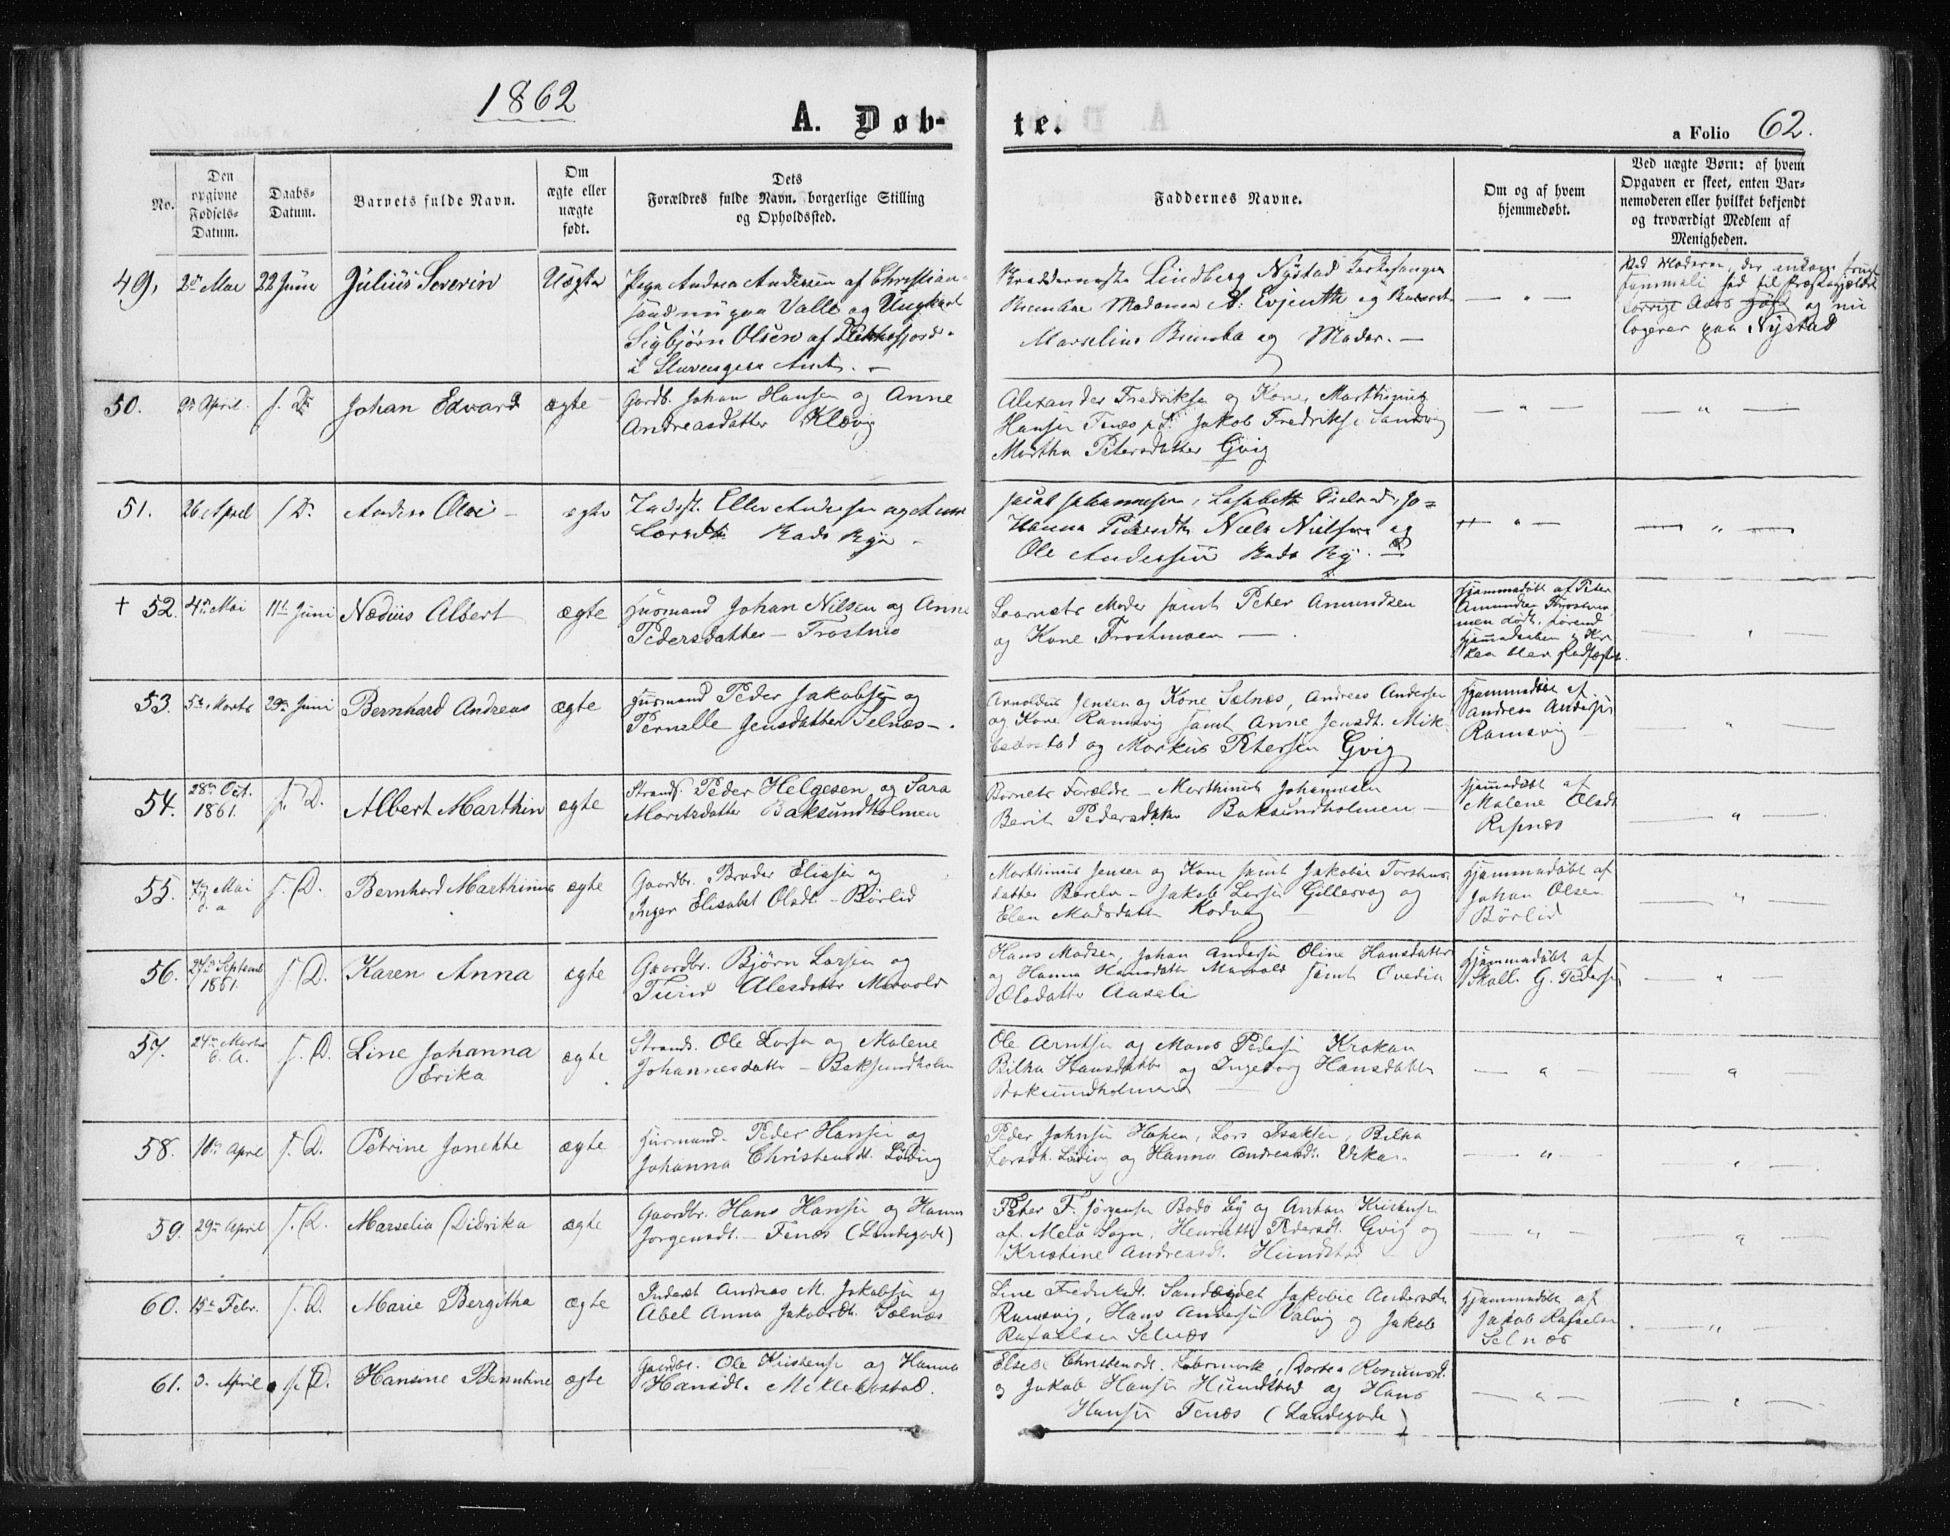 1862
A. Døb- te.
a Folio 62.
No.
Den opgivne Fødsels-Datum.
Daabs-Datum.
Barnets fulde Navn.
Om ægte eller uægte født.
Dets Forældres fulde Navn, borgerlige Stilling og Opholdssted.
Faddernes Navne.
Om og af hvem hjemmedøbt.
Ved uægte Børn: af hvem Opgaven er skeet, enten Barnemoderen eller hvilket bekjendt og troværdigt Medlem af Menigheden.
49. 2den Mai 22 Juni Julius Severin Uægte
Andrea Andersen af Christian-
sund nu paa Valle og Ungkarl
Sigbjørn Olsen af
i Stavanger Amt. -
Lindberg Nystad Kirkesanger
Madame A. Evjenth og
Marselius og Moder. -
Ved Moderen, der
til Præstegjældet
og nu
logerer paa Nystad
50. April f. D. Johan Edvard ægte
Gaardb. Johan Hansen og Anne
Andreasdatter Kløvig
Alexander Fredriksen og Kone, Marthinus
Hansen Fenes, Jakob Fredriks. Sandvig
Martha Petersdatter Gvig
51. 26 April f. D. Anders Olai - ægte
Inderst. Andersen og Anne
Larsdt. Bodø By -
Jacob Johannesen, Lisabeth Jo-
hanna Pedersdtr Niels Nielsen og
Ole Andersen Bodø By. -
+ 52. 4de Mai 11te Juni Nædius Albert ægte
Huusmand Johan Nilsen og Anne
Pedersdatter - Trostmo
Barnets Moder samt Peter Amundsen
og Kone Trostmoen -
Hjemmedøbt af Peter
Amundsen
53. 5te Marts 29de Juni Bernhard Andreas ægte
Huusmand Peder Jakobsen og
Pernelle Jensdatter Selnæs -.
Arnoldus Jensen og Kone Selnæs, Andreas Andersen
og Kone Ramsvig samt Anne Jensdt. Mik-
og Markus Petersen Gvig
Hjemmedøbt af
Andreas Andersen
Ramsvig
54. 28de Oct. 1861. f. D. Albert Marthin ægte
Strands. Peder Helgesen og Sara
Moritsdatter Baksundholmen
Barnets Forældre - Marthinus Johannesen
Berit Pedersdatter Baksundholmen -
Hjemmedøbt af
Malene Olsdt.
Ripnæs
55. 7de Mai d. a f. D. Bernhard Marthinus ægte
Gaardbr. Broder Eliasen og
Inger Elisabet Olsdt. - Børlid
Marthinus Jensen og Kone samt Jakobie Torstens-
datter - Jakob Larsen Gillesvag og
Elen Madsdatter Kodvag -
Hjemmedøbt af
Johan Olsen
Børlid
56. 27de Septemb 1861. f. D. Karen Anna ægte
Gaardbr. Bjørn Larsen og
Turid Alesdatter Mævold
Hans Madsen, Johan Andersen Oline Hansdatter
og Hanna Hansdatter Mævold samt Ovedia
Olsdatter Aaseli
Hjemmedøbt af
Skoll. G. Pedersen
57. 24de Marts d. A. f. D. Line Johanna
Erika ægte
Strands. Ole Larsen og Malene
Johannesdatter - Baksundholm
Ole Arntsen og Mons Pedersen Krokan
Bilha Hansdatter og Ingeborg Hansdatter
Baksundholmen
58. 10de April f. D. Petrine Jonette ægte
Huusmand. Peder Hansen og
Johanna Christensdt. Løding
Peder Johnsen Hopen, Lars Isaksen, Bilha
Larsdt. Løding og Hanna Andreasdt. Vika.
59. 29de April f. D. Marselia Didrika ægte
Gaardbr. Hans Hansen og Hanna
Jørgensdt. - Fenæs (Landegode)
Peter F. Jørgensen Bodø By og Anton Kristensen
af Melø Sogn, Henriette Pedersdt. Gvig og
Kristine Andreasdt. Hundstad
60. 15de Febr. f. D. Marie Bergitha ægte
Inderst Andreas M. Jakobsen og
Abel Anna Jakobsdt. Selnæs
Line Fredriksdt. Sandvigdet Jakobie Andersdtr
Ramsvig, Hans Andersen Valvig og Jakob
Rafaelsen Selnæs
Hjemmedøbt af
Jakob Rafaelsn
Selnæs
61. 3. April f. D. Hansine Berntine ægte
Gaardbr. Ole Kristensen og Hanna
Hansdt. Miklebostad.
Christensdt. Løbsmark, Dortea Rasmusdt.
og Jakob Hansen Hundstad og Hans
Hansen Fenæs (Landegode)